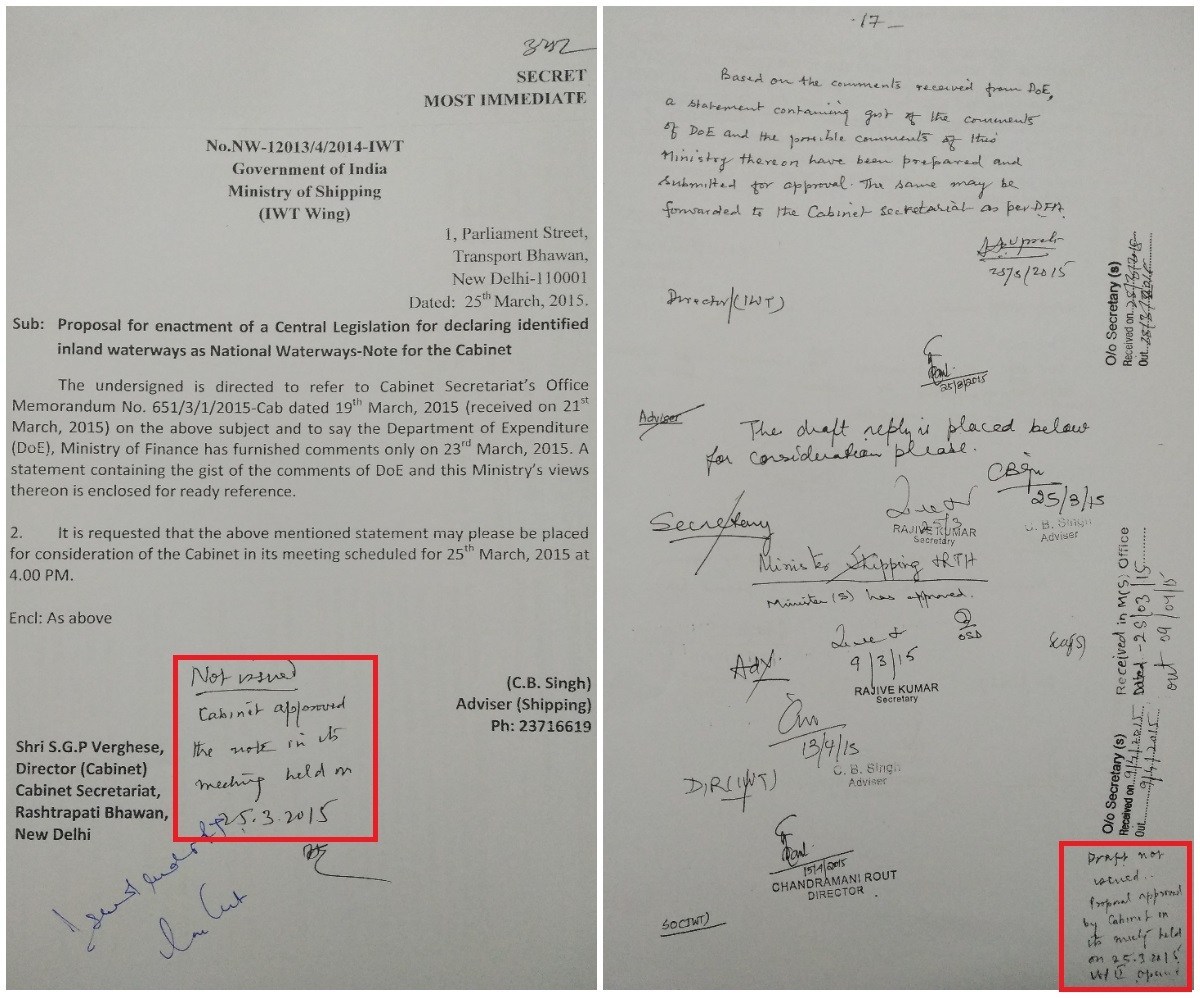 SECRET
MOST IMMEDIATE
No.NW-12013/4/2014-IWT
Government of India
Ministry of Shipping
(IWT Wing)
1, Parliament Street,
Transport Bhawan,
New Delhi-110001
Dated: 25th March, 2015.
Sub: Proposal for enactment of a Central Legislation for declaring identified
inland waterways as National Waterways-Note for the Cabinet
The undersigned is directed to refer to Cabinet Secretariat's Office
Memorandum No. 651/3/1/2015-Cab dated 19th March, 2015 (received on 21st
March, 2015) on the above subject and to say the Department of Expenditure
(DoE), Ministry of Finance has furnished comments only on 23rd March, 2015. A
statement containing the gist of the comments of DoE and this Ministry's views
thereon is enclosed for ready reference.
2. It is requested that the above mentioned statement may please be placed
for consideration of the Cabinet in its meeting scheduled for 25th March, 2015 at
4.00 PM.
Encl: As above
(C.B. Singh)
Adviser (Shipping)
Ph: 23716619
Not issued
Cabinet approved
the note in its
meeting held on
25.3.2015
Shri S.G.P Verghese,
Director (Cabinet)
Cabinet Secretariat,
Rashtrapati Bhawan,
New Delhi
-17-
Based on the comments received from DoE,
a statement containing gist of the comments
of DoE and the possible comments of this
Ministry thereon have been prepared and
submitted for approval. The same may be
forwarded to the Cabinet Secretariat as per DFA.
25/3/2015
Director (IWT)
25/3/2015
O/o Secretary (s)
Received on
Out
Adviser
The draft reply is placed below
for consideration please.
25/3/15
C. B. Singh
Adviser
Secretary
25/3
RAJIVE KUMAR
Secretary
Minister Shipping & RTH
Minister (S) has approved.
OSD
9/3/15
RAJIVE KUMAR
Secretary
Adv.
13/4/15
C. B. Singh
Adviser
DIR (IWT)
15/4/2015
CHANDRAMANI ROUT
DIRECTOR
SO(IWT)
Received in M(S) Office
Dated - 25/03/15
out 09/04/15
O/o Secretary (s)
Received on 9/4/2015
Out 9/4/2015
Draft not
issued.
Proposal approved
by Cabinet in
its meeting held
on 25.3.2015